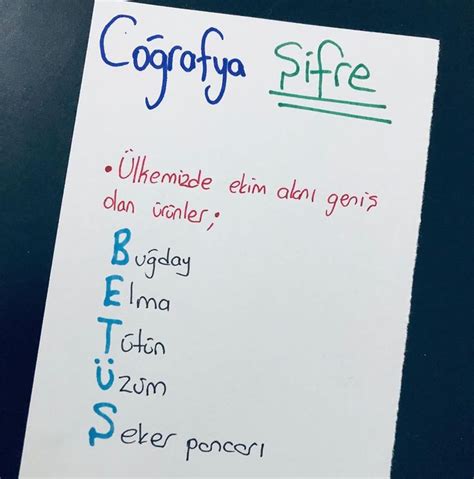 Coğrafya Şifre
• Ülkemizde ekim alanı geniş
olan ürünler;
Buğday
Elma
Tütün
Üzüm
Şeker pancarı